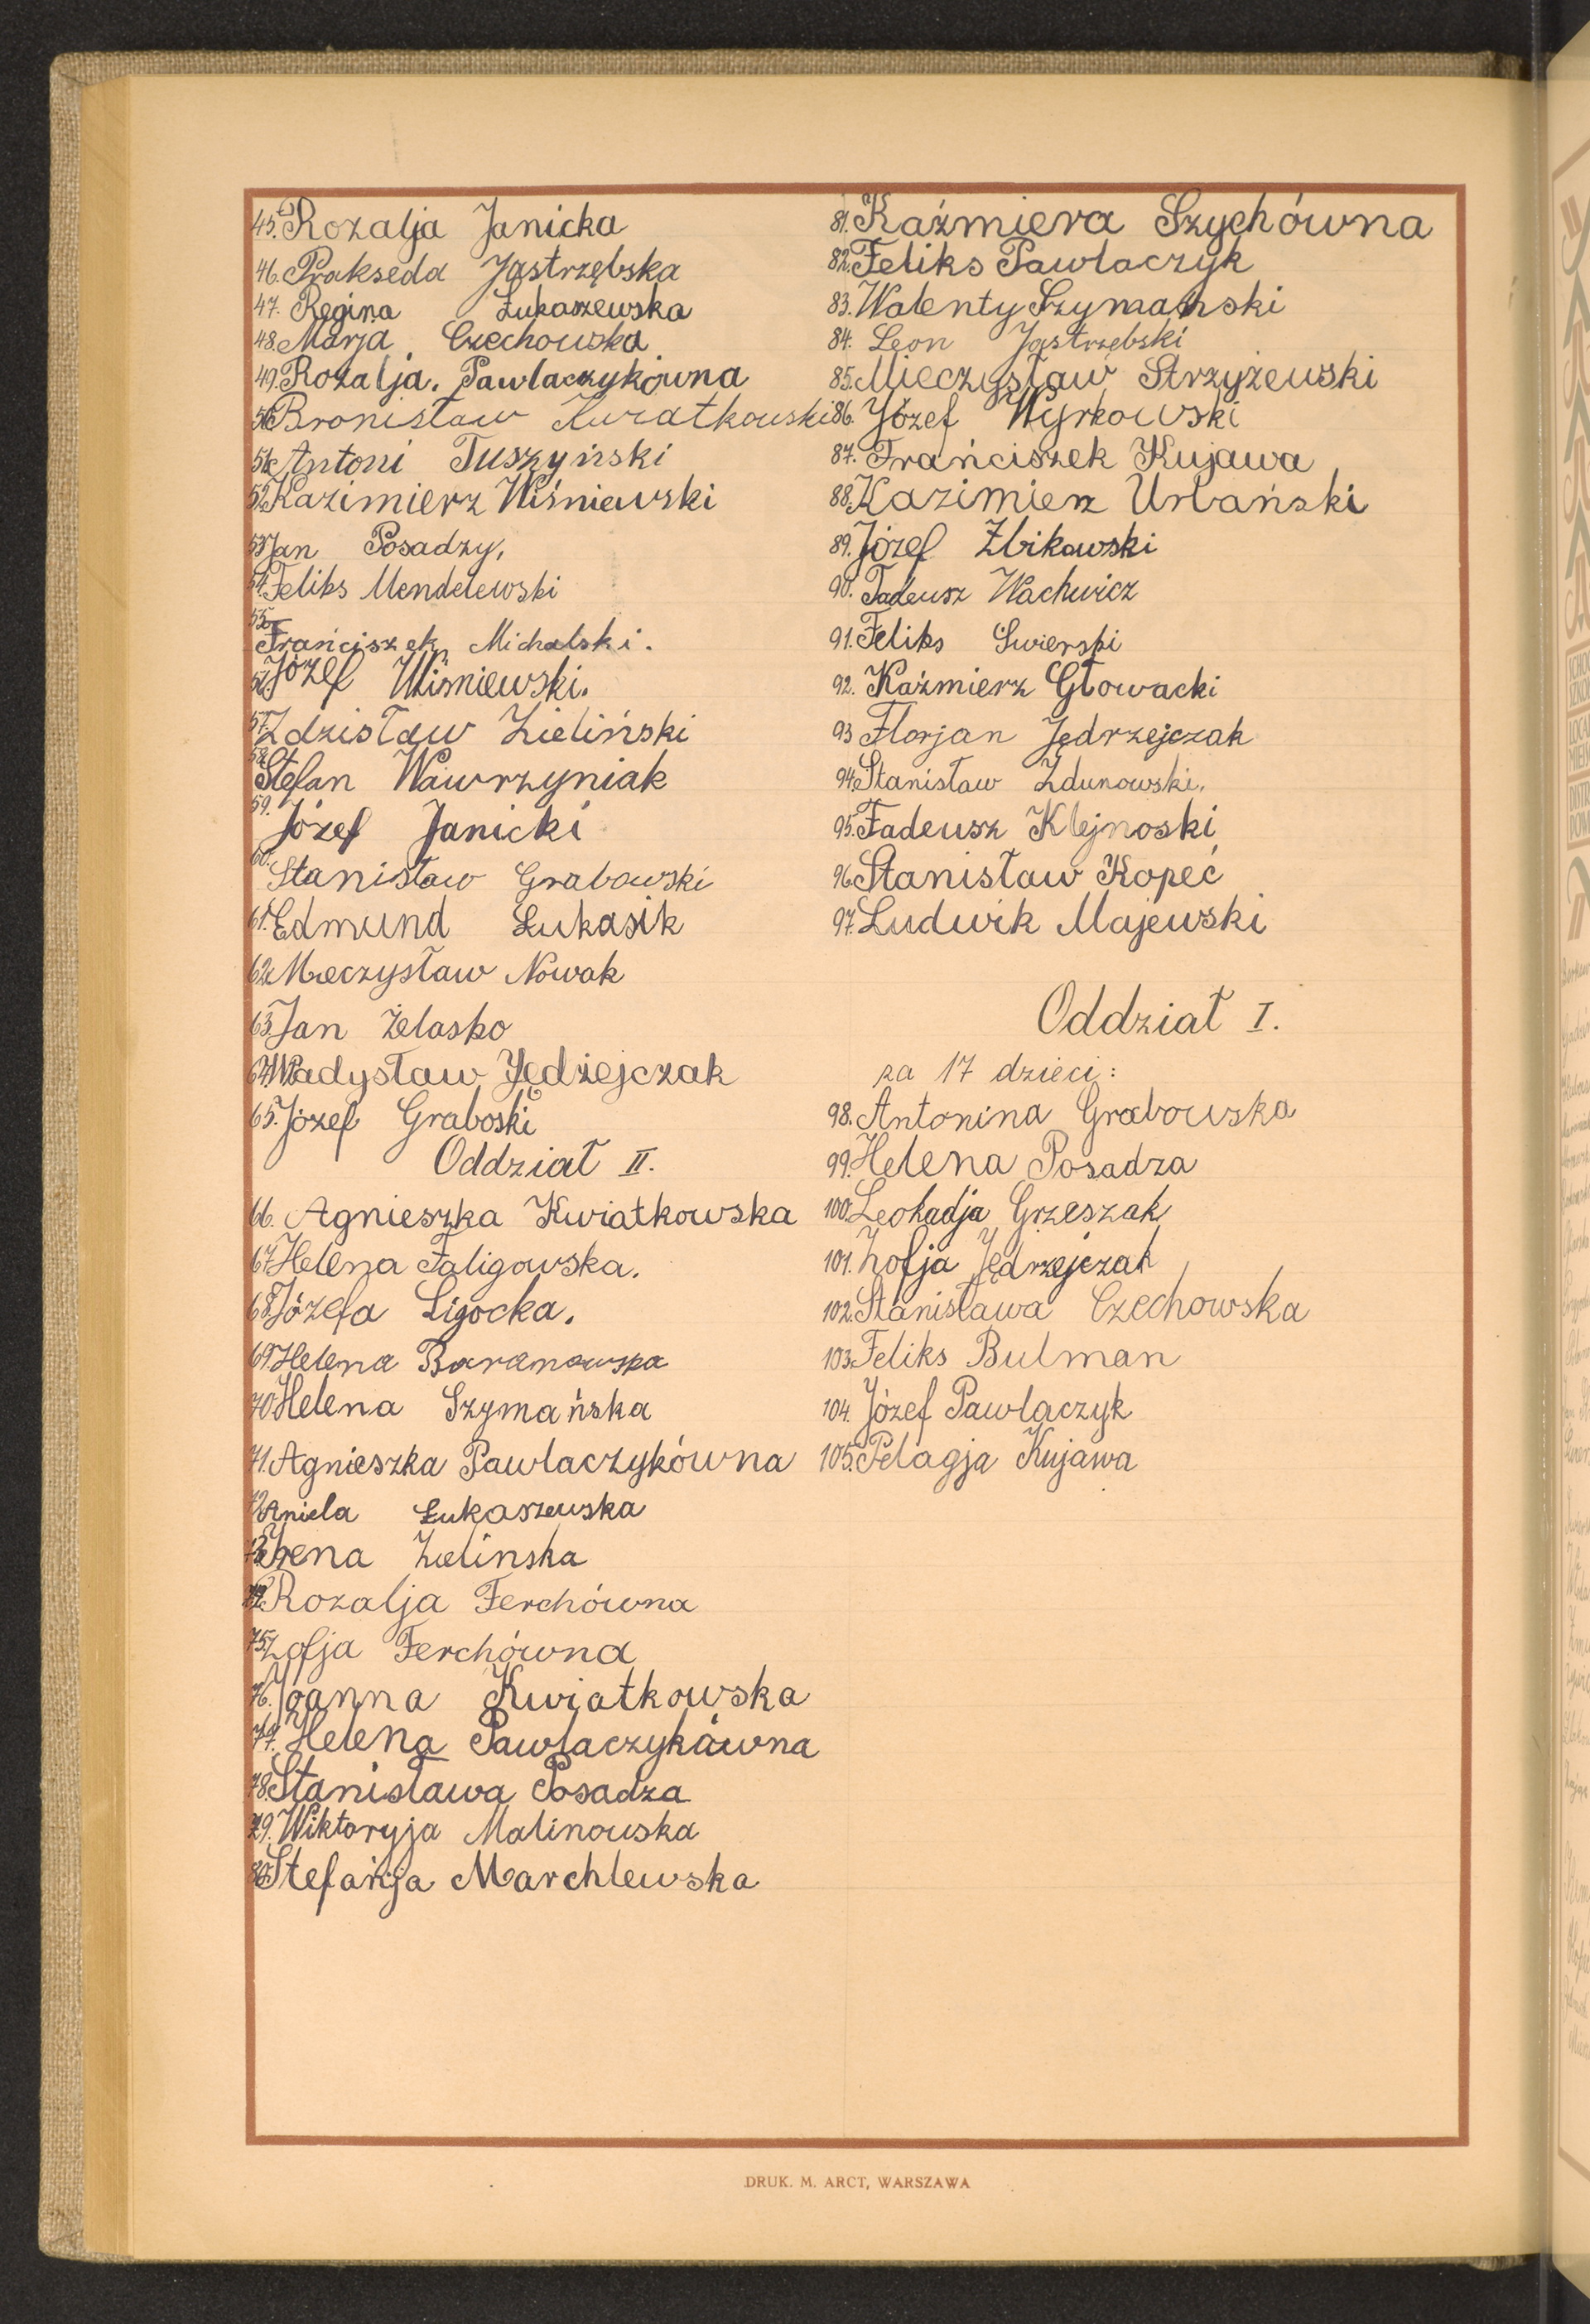 45. Rozalja Janicka
46. Prakseda Jastrzębska
47. Regina Łukaszewska
48. Marja Czechowska
49. Rozalja. Pawlaczykówna
50. Bronisław Kwiatkowski
51. Antoni Tuszyński
52. Kazimierz Wiśniewski
53. Jan Posadzy,
54. Feliks Mendelewski
55. Franciszek Michalski.
56. Józef Wiśniewski.
57. Zdzisław Zieliński
58. Stefan Wawrzyniak
59. Józef Janicki
60. Stanisław Grabowski
61. Edmund Łukasik
62. Mieczysław Nowak
63. Jan Żelasko
64. Władysław Jędżejczak
65. Józef Graboski
Oddział II.
66. Agnieszka Kwiatkowska
67. Helena Faligowska.
68. Józefa Ligocka.
69. Helena Baranowska
70. Helena Szymańska
71. Agnieszka Pawlaczykówna
72. Aniela Łukaszewska
73. Irena Zielinska
74. Rozalja Ferchówna
75. Zofja Ferchówna
76. Joanna Kwiatkowska
77. Helena Pawlaczykówna
78. Stanisława Posadza
79. Wiktoryja Malinowska
80. Stefanja Marchlewska
81. Kaźmiera Szychówna
82. Feliks Pawlaczyk
83. Walenty Szymański
84. Leon Jastrzębski
85. Mieczysław Strzyżewski
86. Józef Wyrkowski
87. Franciszek Kujawa
88. Kazimierz Urbański
89. Józef Zbikowski
90. Tadeusz Wachwicz
91. Feliks Swierski
92. Kaźmierz Głowacki
93 Florjan Jędrzejczak
94. Stanisław Zdunowski.
95. Tadeusz Klejnoski
96. Stanisław Kopeć
97. Ludwik Majewski
Oddział I.
za 17 dzieci:
98. Antonina Grabowska
99. Helena Posadza
100. Leokadja Grzeszak
101. Zofja Jędrzejczak
102. Stanisława Czechowska
103. Feliks Bulman
104. Józef Pawlaczyk
105. Pelagja Kujawa
DRUK. M. ARCT, WARSZAWA